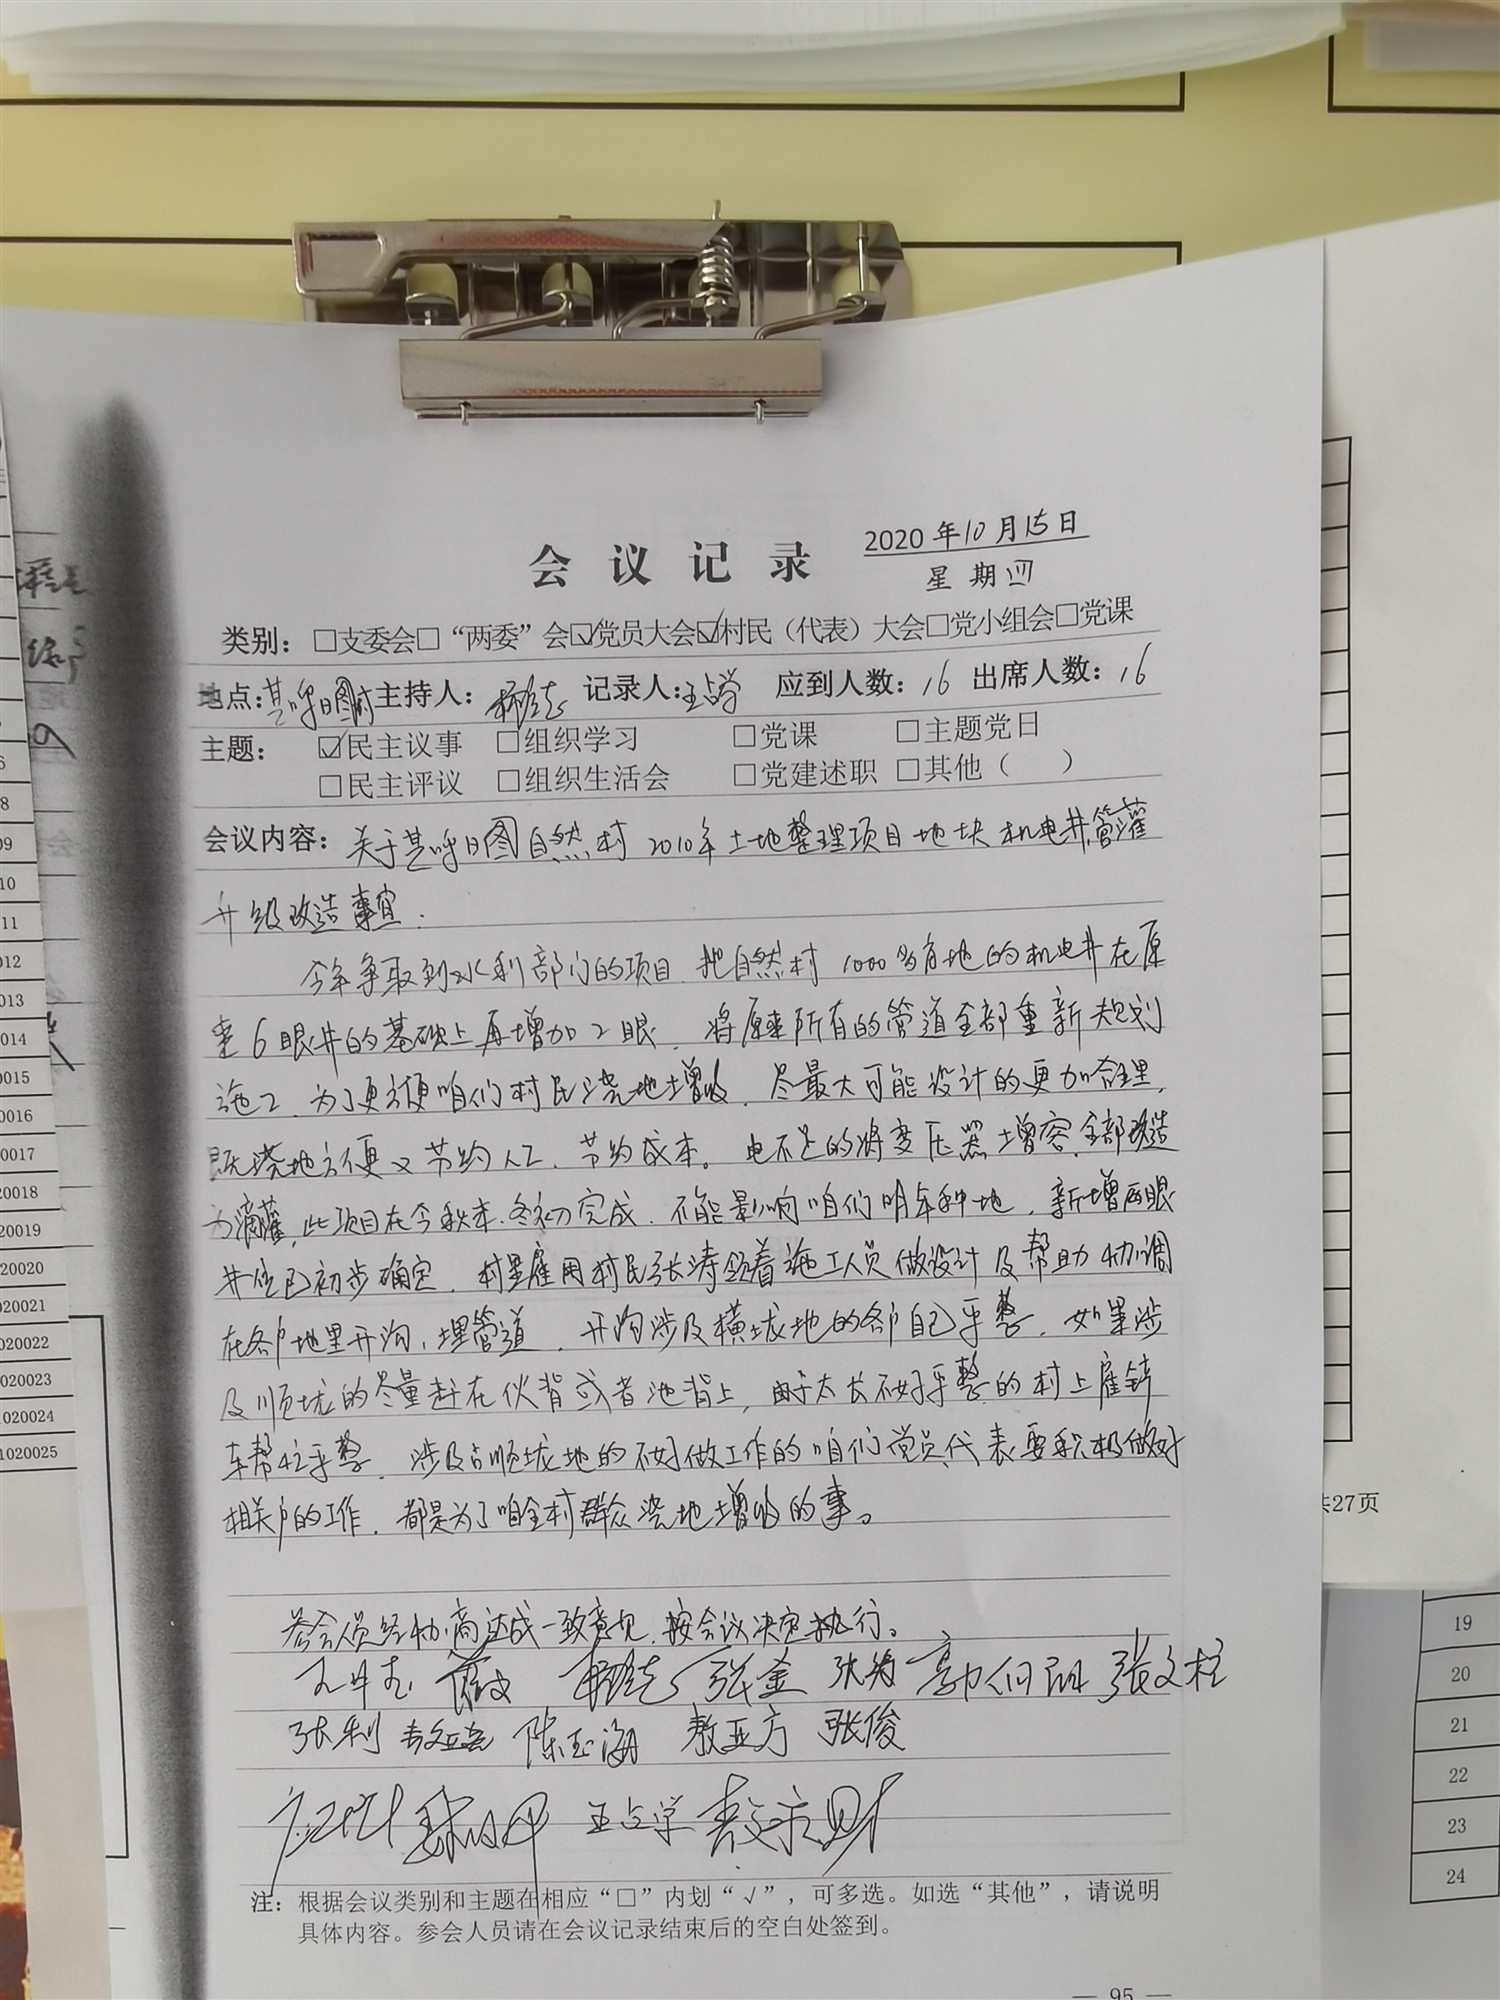 会议记录
2020年10月15日
星期四
类别：□支委会□“两委”会☑党员大会☑村民（代表）大会□党小组会□党课
地点：其呼日图村 主持人： 记录人：王占学 应到人数：16 出席人数：16
主题： ☑民主议事 □组织学习 □党课 □主题党日
□民主评议 □组织生活会 □党建述职 □其他（ ）
会议内容：关于其呼日图自然村2010年土地整理项目地块机电井、管灌
升级改造事宜.
今年争取到水利部门的项目.把自然村1000多亩地的机电井在原
来6眼井的基础上再增加2眼.将原来所有的管道全部重新规划
施工.为了更方便咱们村民浇地增收.尽最大可能设计的更加合理.
既浇地方便又节约人工、节约成本。电不足的将变压器增容.全部改造
为滴灌.此项目在今秋末.冬初完成.不能影响咱们明年种地.新增两眼
井位已初步确定.村里雇用村民张涛领着施工人员做设计及帮助协调
在各户地里开沟、埋管道.开沟涉及横垅地的各户自己平整.如果涉
及顺垅的尽量赶在伙背或者池背上,由于太长不好平整的村上雇铲
车帮忙平整.涉及占顺垅地的不好做工作的咱们党员、代表要积极做好
相关户的工作.都是为了咱全村群众浇地增收的事。
参会人员经协商达成一致意见.按会议决定执行。
张金 张涛 张文柱
张利 陈玉海 敖亚方 张俊
王占学
注：根据会议类别和主题在相应“□”内划“√”，可多选。如选“其他”，请说明
具体内容。参会人员请在会议记录结束后的空白处签到。
— 95 —
共27页
19
20
21
22
23
24
10
11
012
013
014
0015
0016
0017
20018
20019
20020
020021
020022
020023
020024
1020025